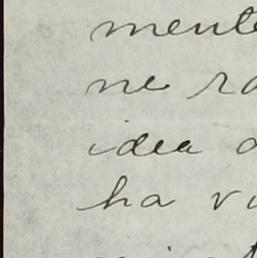 mente
ne ra
idea
ha vi